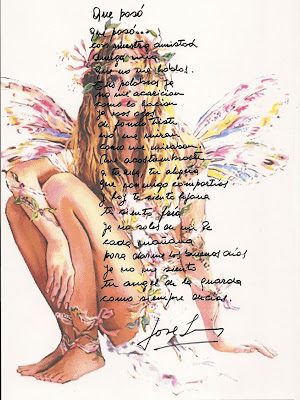 Que pasó
que pasó...
con nuestra amistad
amiga mia
que no me hablas.
tus palabras ya
no me acarician
como lo hacian
ya esos ojos
de fondo triste
no me miran
como me miraban.
me acostumbraste
a tu voz, tu alegria
que conmigo compartias
y hoy te siento lejana
te siento fria
ya no sales en mi
cada mañana
para darme los buenos dias
ya no me siento
tu angel de la guarda
como siempre decias.
Jose L